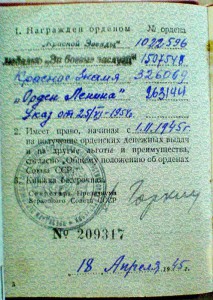 1. Награжден орденом № ордена
„Красной Звезды" 1022596
медалью „За боевые заслуги" 1507548
Красное Знамя 326069
„Орден Ленина"
Указ от
2. Имеет право, начиная с 1.II.1945г.
на получение орденских денежных выдач
и на другие льготы и преимущества,
согласно „Общему положению об орденах
Союза ССР."
3. Книжка бессрочная.
Секретарь Президиума
Верховного Совета СССР
Горкин
№ 209317
18 Апреля 1945г.